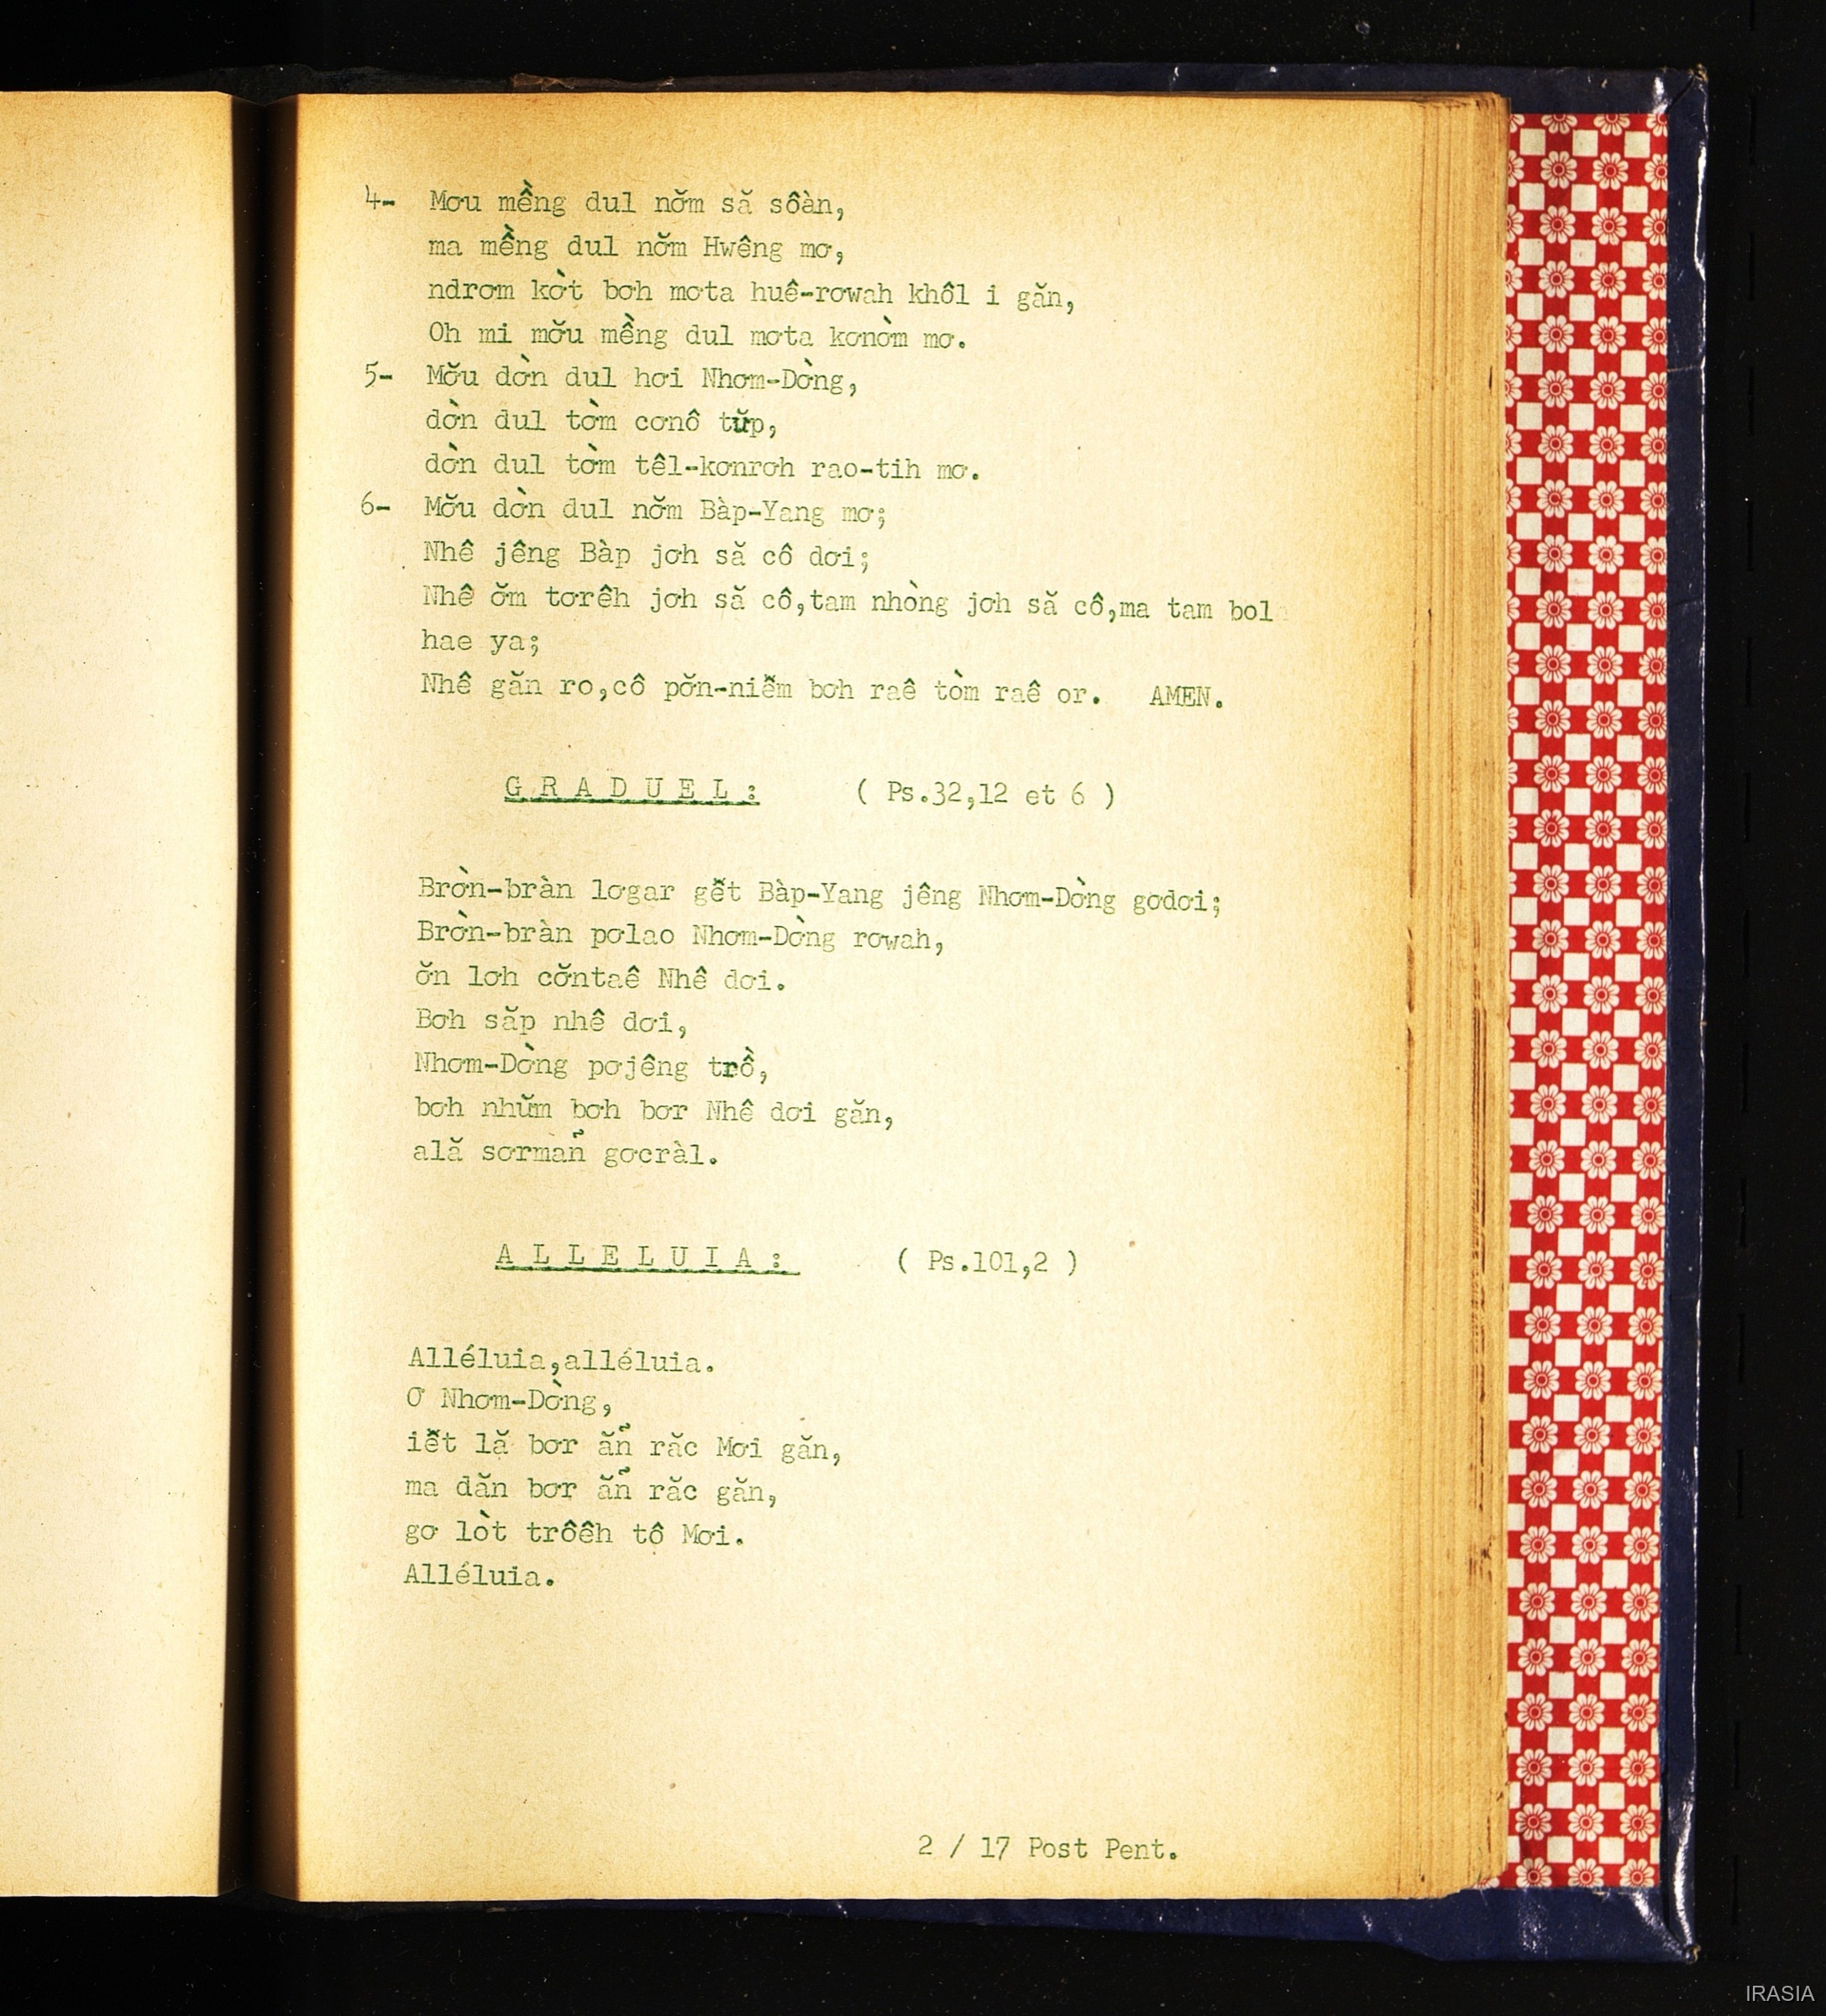 4- Mơu mềng dul nơ̆m să sôàn,
ma mềng dul nơ̆m Hwêng mơ,
ndrơm kờt bơh mơta huê-rơwah khôl i găn,
Oh mi mơ̆u mềng dul mơta kơnòm mơ.
5- Mơ̆u dờn dul hơi Nhơm-Dờng,
dờn dul tờm cơnô tŭp,
dờn dul tờm têl-kơnrơh rao-tih mơ.
6- Mơ̆u dờn dul nơ̆m Bàp-Yang mơ;
Nhê jêng Bàp jơh să cô dơi;
Nhê ơ̆m tơrêh jơh să cô,tam nhòng jơh să cô,ma tam bol
hae ya;
Nhê găn ro,cô pơ̆n-niê̆m bơh raê tòm raê or. AMEN.
G R A D U E L : ( Ps.32,12 et 6 )
Brờn-bràn lơgar gê̆t Bàp-Yang jêng Nhơm-Dờng gơdơi;
Brờn-bràn pơlao Nhơm-Dờng rơwah,
ơ̆n lơh cơ̆ntaê Nhê dơi.
Bơh săp nhê dơi,
Nhơm-Dờng pơjêng trồ,
bơh nhŭm bơh bơr Nhê dơi găn,
ală sơrmañ̉ gơcràl.
A L L E L U I A : ( Ps.101,2 )
Alléluia,alléluia.
Ơ Nhơm-Dờng,
iê̆t lặ bơr ăn̉ răc Mơi găn,
ma dăn bơr ăn̉ răc găn,
gơ lòt trôêh tô Mơi.
Alléluia.
2 / 17 Post Pent.
IRASIA